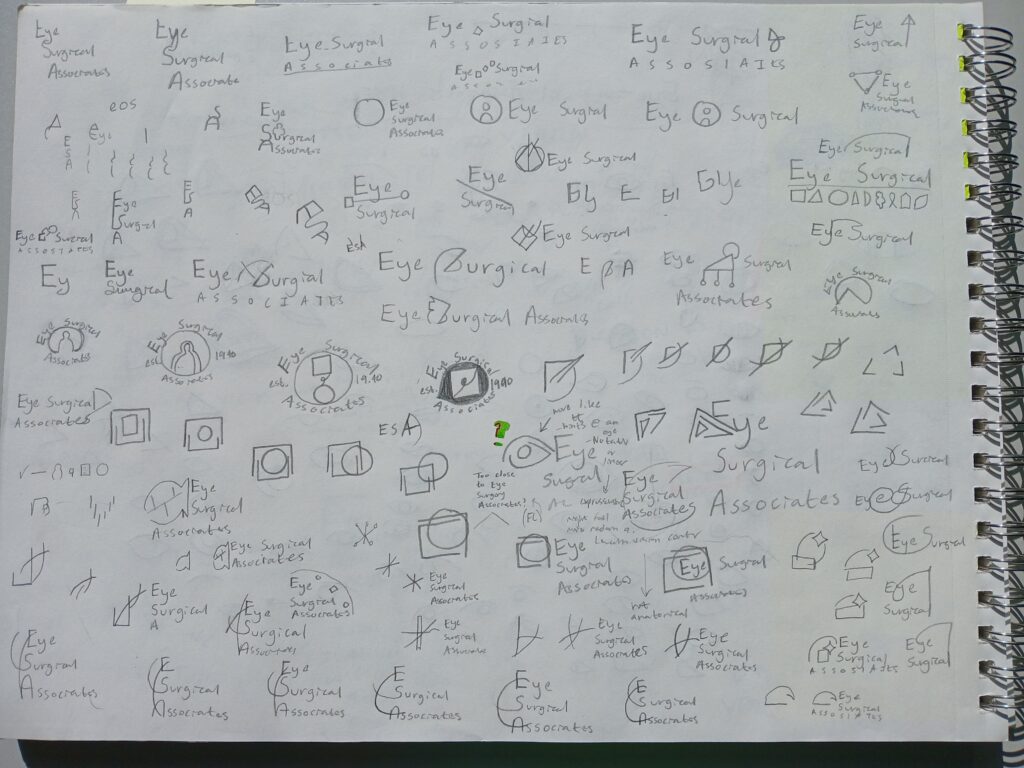 Eye
Surgical
Associates
Eye
Surgical
Associate
Eye Surgial
Associats
Eye Surgial
ASSOSIAIES
Eye Surgical
ASSOSIAItS
Eye
Surgical
Eye Surgical
Eye
Surgual
Associations
eos
Eye
Surgical
Associates
Eye
Surgical
Associates
Eye Surgical
Eye Surgical
E
S
A
eye
S
A
Eye Surgical
Eye Surgical
Eye Surgical
E
S
A
Eye
Surgial
A
E
S
A
Eye
Surgical
Est
Eye
Surgical
E
Eye Surgical
ASSOSIATES
Eye Surgical
Eye Surgical
Ey
Eye
Surgical
Eye Surgial
ASSOCIAItS
Eye Surgical
E S A
Eye Surgical
Associates
Eye Surgical
Eye Surgical Associates
Eye Surgical
Associates
Eye Surgical
est. 1940
Associates
Eye Surgical
est. 1940
Associates
Eye Surgical
est. 1940
Associates
Eye Surgical
Associates
ESA
?
more like
an
eye
Too close
to Eye
Surgery
Associates?
Eye
Surgical
Eye
Surgical
Associates
Eye
Surgical
Associates
(FL)
Eye Surgical
Eye Surgical
Eye
Surgical
Associates
Eye Surgical
Associates
Eye
Surgical
Associates
Eye Surgical
Associates
not
anatomical
Eye Surgical
Eye
Surgical
A
Eye
Surgical
Associates
Eye
Surgical
Associates
Eye
Surgical
Associates
Eye
Surgical
Associate
Eye
Surgical
Associates
Eye
Surgical
Associates
Eye
Surgical
Eye
Surgical
ASSOSIATES
Eye
Surgical
Eye
Surgical
Associates
E
Surgical
Associates
Eye
Surgical
Associates
E
Surgical
Associates
Eye
Surgical
Associates
E
Surgical
Associates
Eye
Surgical
ASSOSIATES